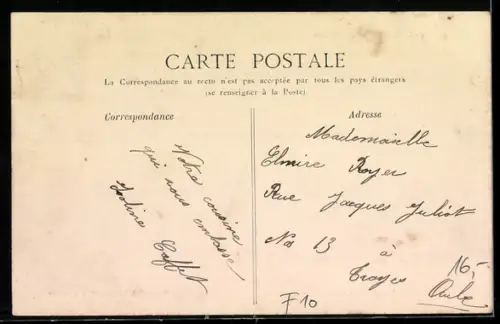 CARTE POSTALE
La Correspondance au recto n'est pas acceptée par tous les pays étrangers
(se renseigner à la Poste)
Correspondance
Adresse
Votre cousine
qui vous embrasse
Caffet
Mademoiselle
Elmire Royer
Rue Jacques Juliot
No 13 à
Troyes
Aube
16.-
F10